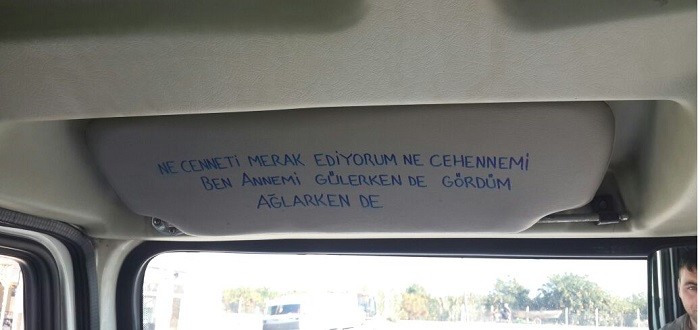 NE CENNETİ MERAK EDİYORUM NE CEHENNEMİ
BEN ANNEMİ GÜLERKEN DE GÖRDÜM
AĞLARKEN DE